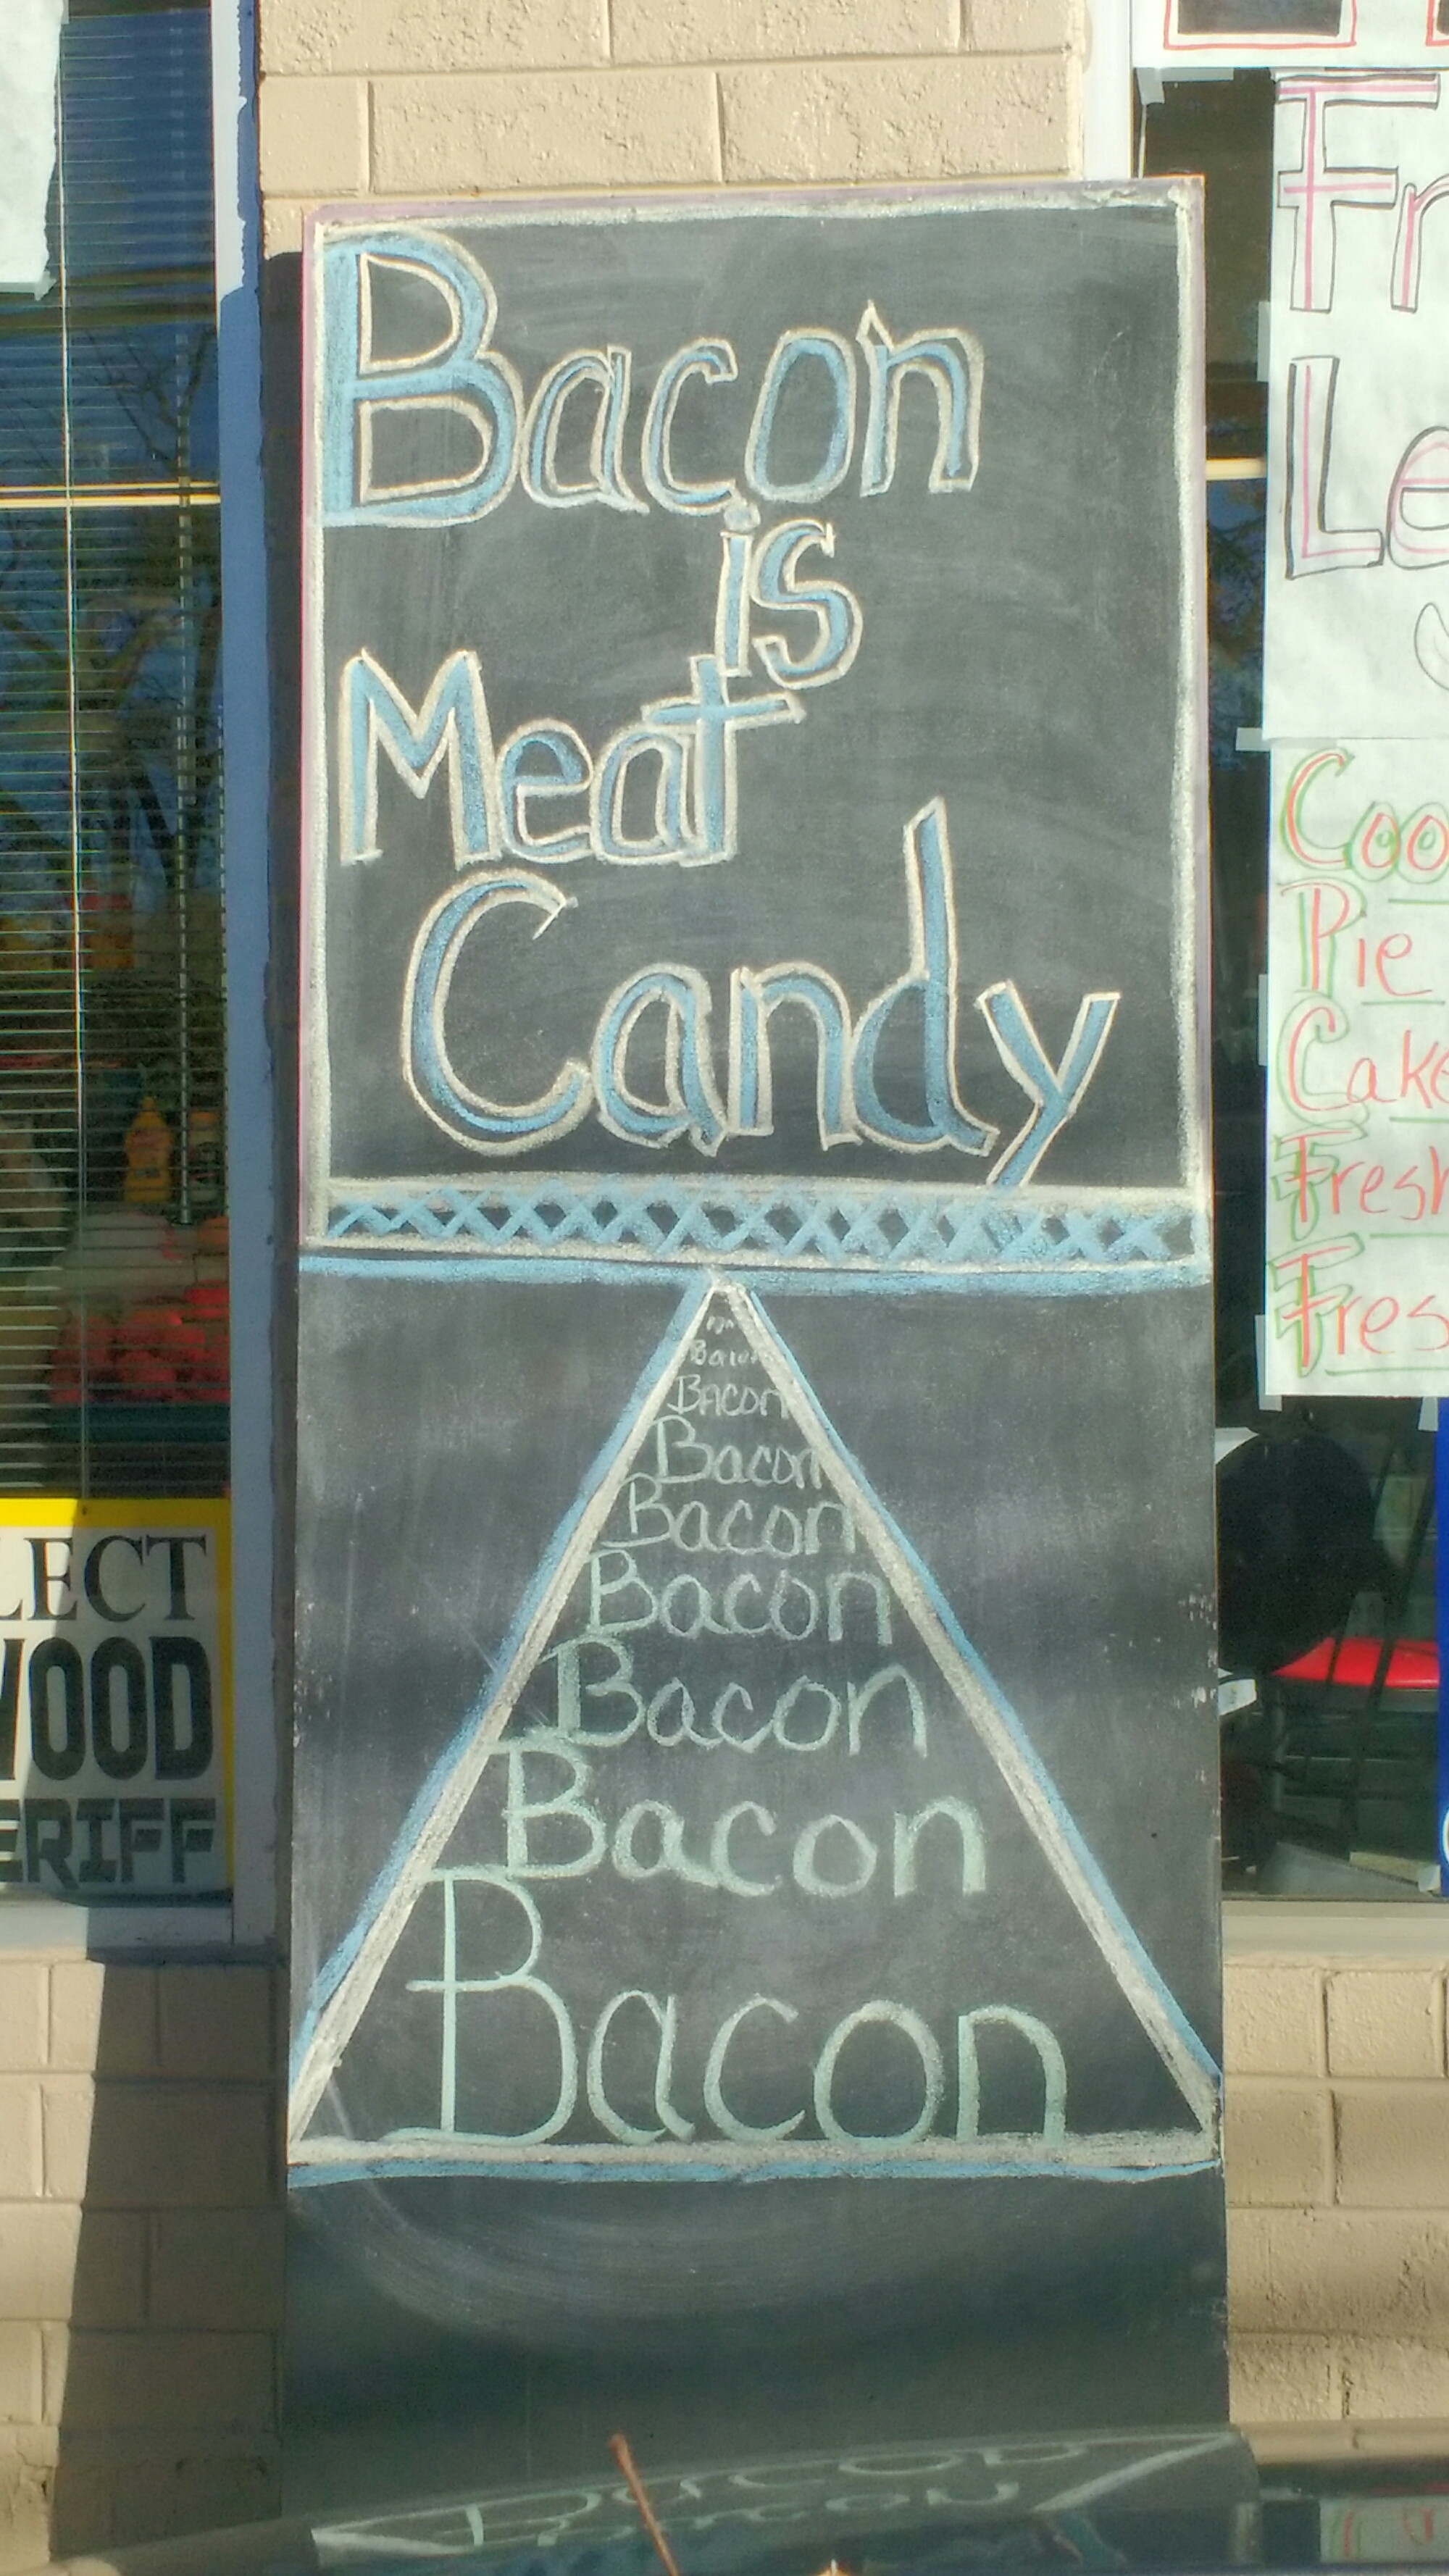 Bacon
is
Meat
Candy
Bacon
Bacon
Bacon
Bacon
Bacon
Bacon
Bacon
Bacon
LECT
WOOD
ERIFF
Fr
Le
Coo
Pie
Cake
Fresh
Fres